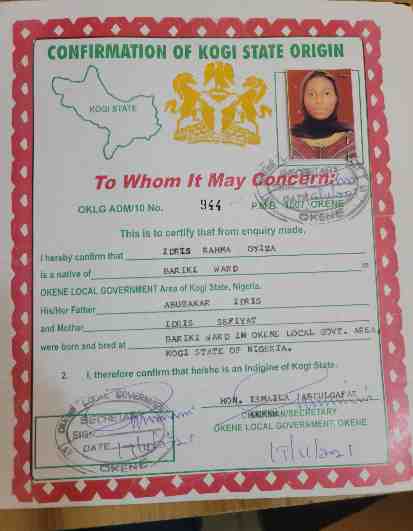 CONFIRMATION OF KOGI STATE ORIGIN
KOGI STATE
To Whom It May Concern:
OKLG ADM/10 No. 944 P.M.B. 1007 OKENE
OKENE
This is to certify that from enquiry made,
I hereby confirm that IDRIS RAHMA OYIZA
is a native of BARIKI WARD in
OKENE LOCAL GOVERNMENT Area of Kogi State, Nigeria.
His/Her Father ABUBAKAR IDRIS
and Mother IDRIS SEFIYAT
were born and bred at BARIKI WARD IN OKENE LOCAL GOVT. AREA
KOGI STATE OF NIGERIA.
2. I, therefore confirm that he/she is an Indigine of Kogi State.
LOCAL GOVERNMENT
SECRETARY
SIGN
DATE
OKENE
HON.
CHAIRMAN/SECRETARY
OKENE LOCAL GOVERNMENT, OKENE